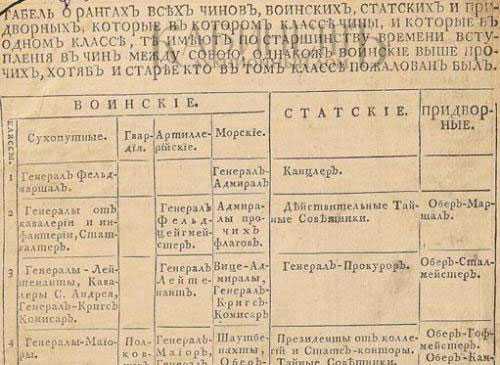 ТАБЕЛЬ О РАНГАХЪ ВСѢХЪ ЧИНОВЪ, ВОИНСКИХЪ, СТАТСКИХЪ И ПРИ-
ДВОРНЫХЪ, КОТОРЫЕ ВЪ КОТОРОМЪ КЛАССѢ ЧИНЫ, И КОТОРЫЕ ВЪ
ОДНОМЪ КЛАССѢ, ТѢ ИМѢЮТЪ ПО СТАРШИНСТВУ ВРЕМЕНИ ВСТУ-
ПЛЕНІЯ ВЪ ЧИНЪ МЕЖДУ СОБОЮ, ОДНАКОЖЪ ВОИНСКІЕ ВЫШЕ ПРО-
ЧИХЪ, ХОТЯБЪ И СТАРѢЕ КТО ВЪ ТОМЪ КЛАССѢ ПОЖАЛОВАНЪ БЫЛЪ.
КЛАССЫ.
ВОИНСКІЕ.
СТАТСКІЕ.
ПРИДВОР-
НЫЕ.
Сухопутные.
Гвар-
дія.
Артилле-
рійскіе.
Морскіе.
1
Генералъ Фельд-
маршалъ.
Генералъ-
Адмиралъ
Канцлеръ.
2
Генералы отъ
кавалеріи и ин-
фантеріи, Стат-
галтеръ.
Генералъ
Фельд-
цейгмей-
стеръ.
Адмира-
лы про-
чихъ
флаговъ.
Дѣйствительные Тай-
ные Совѣтники.
Оберъ-Мар-
шалъ.
3
Генералы-Лей-
тенанты, Кава-
леры С. Андреа,
Генералъ-Кригсъ
Комисаръ.
Генералъ
Лейте-
нантъ.
Вице-Ад-
миралы,
Генералъ-
Кригсъ
Комисаръ
Генералъ-Прокуроръ.
Оберъ-Стал-
мейстеръ.
4
Генералы-Маіо-
ры.
Пол-
ков-
Генералъ-
Маіоръ,
Генералъ
Шаутбе-
нахты,
Оберъ-
Президенты отъ колле-
гій и Статсъ-конторы.
Тайные Совѣтники.
Оберъ-Гоф-
мейстеръ.
Оберъ-Кам-